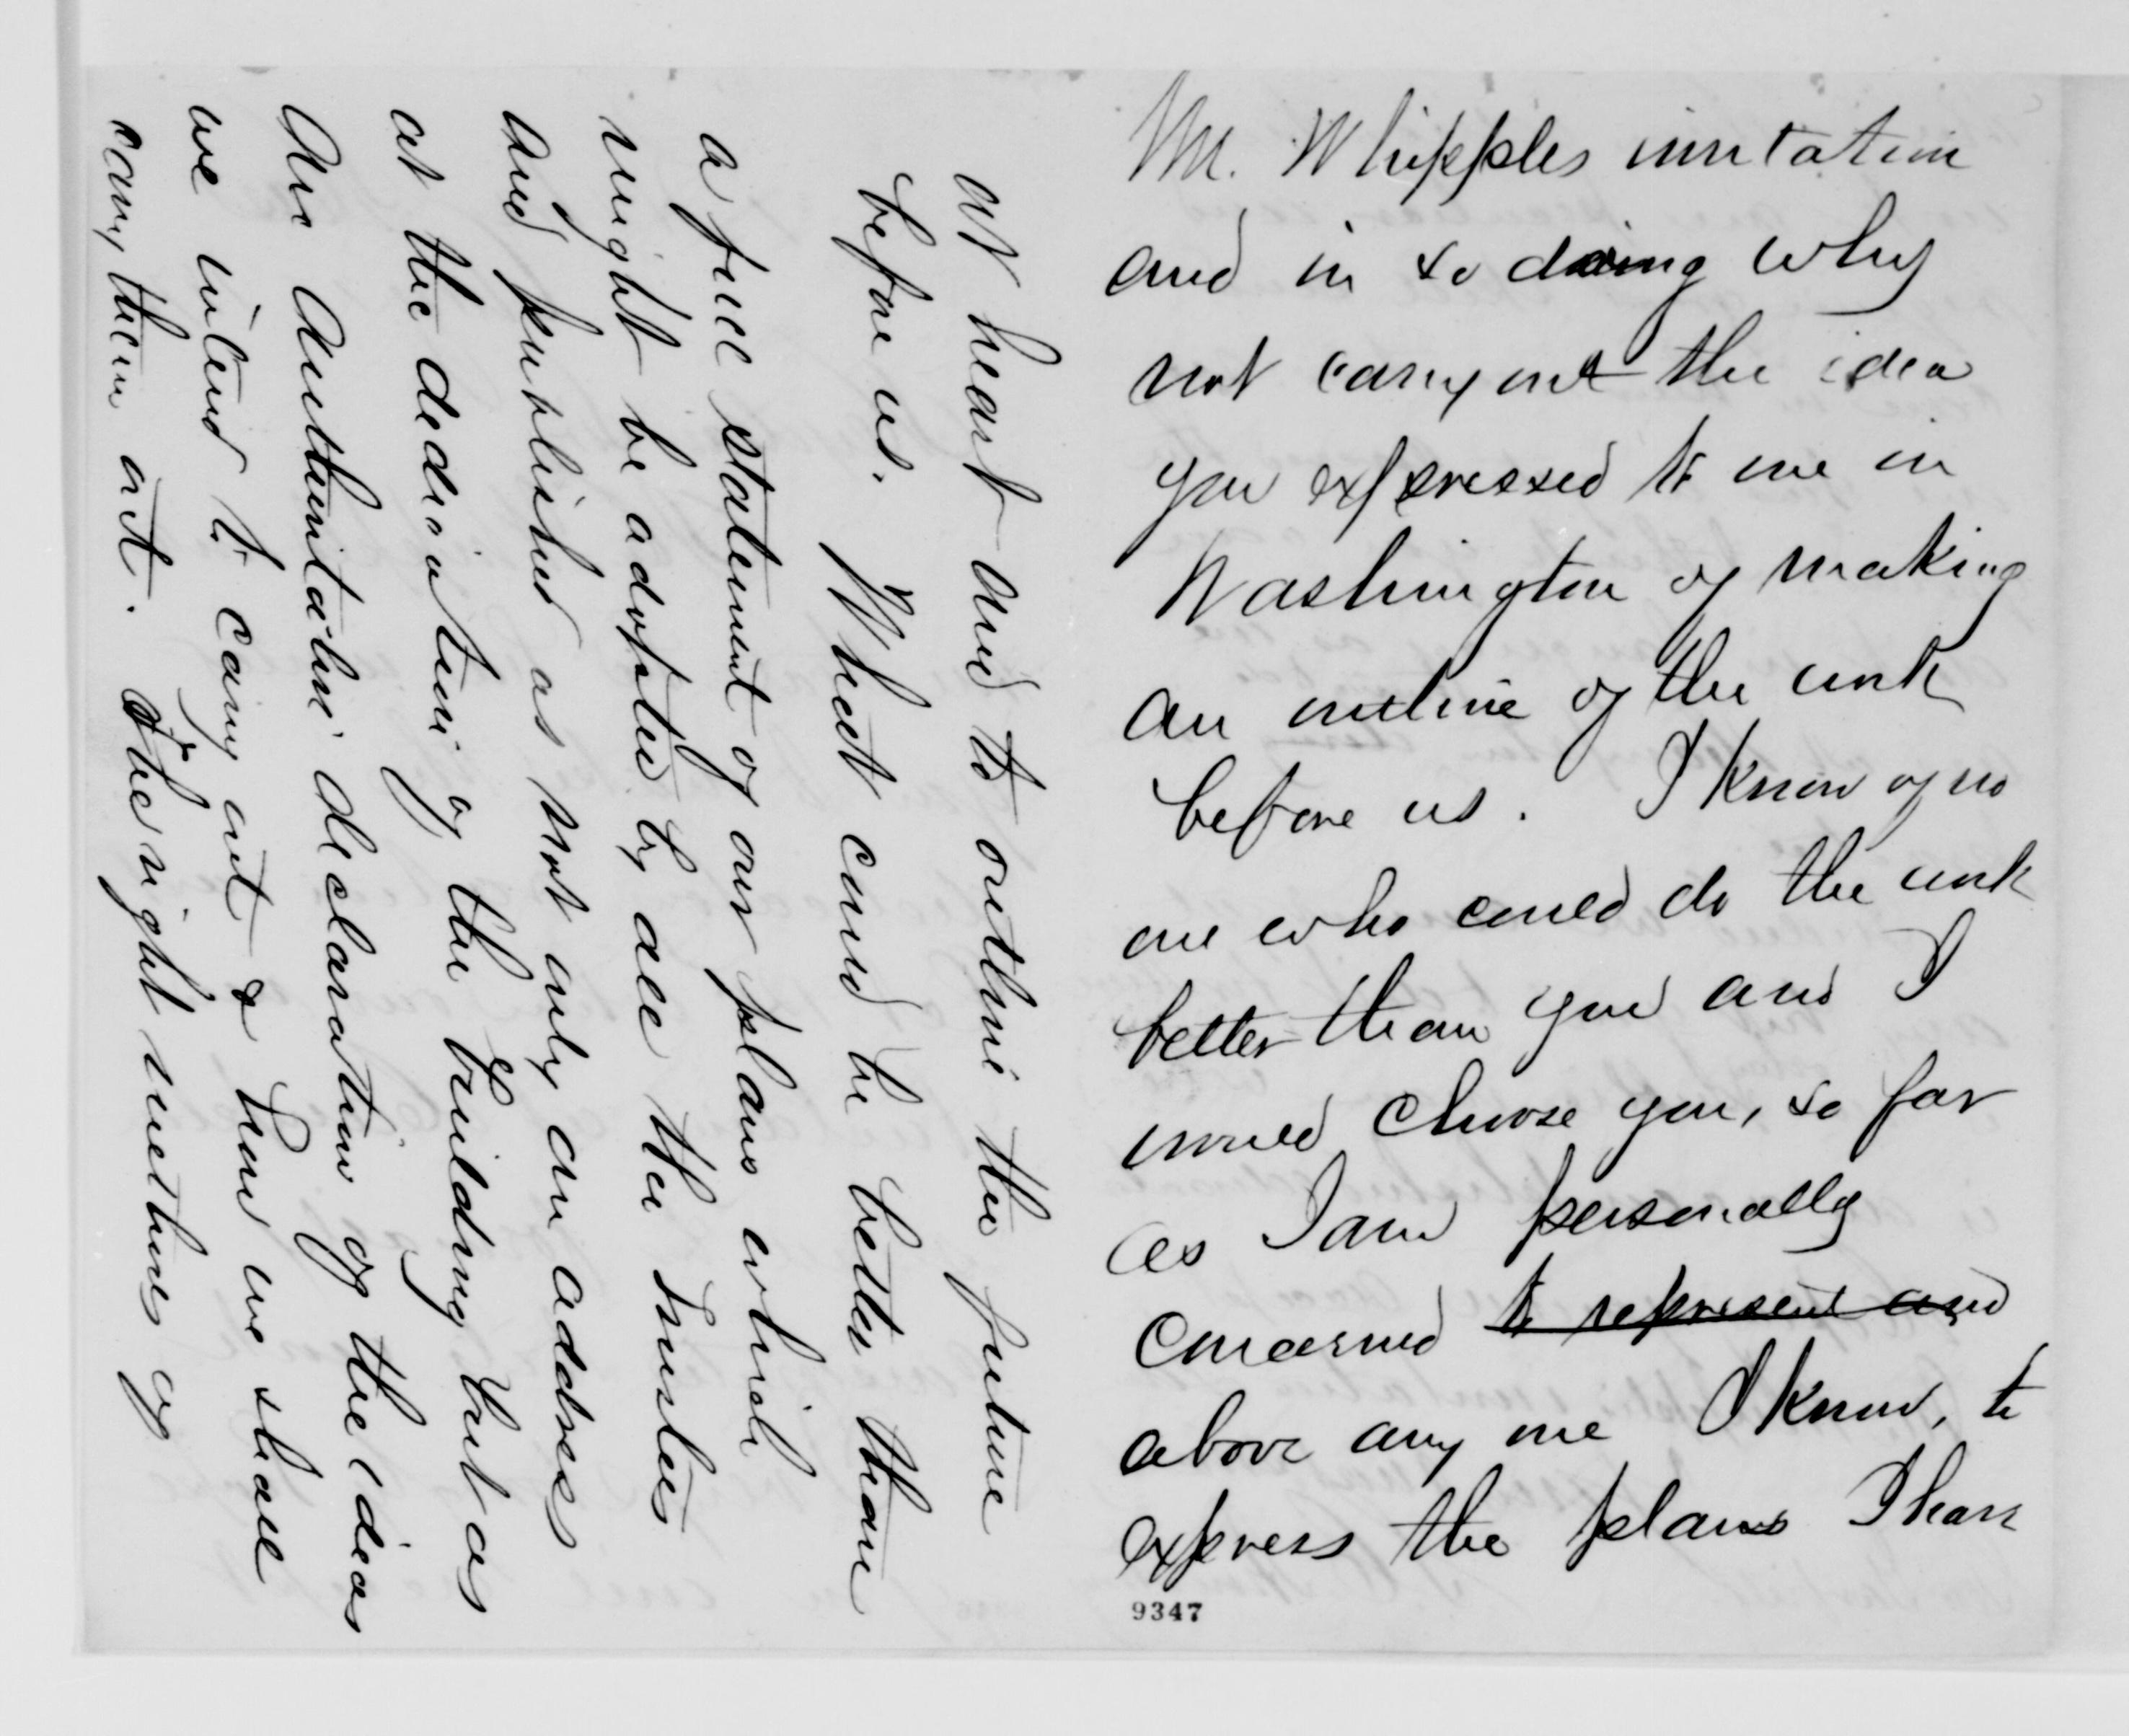 Mr. Whipples invitation
and in so doing why
not carry out the idea
you expressed to me in
Washington of making
an outline of the work
before us. I know of no
one who could do the work
better than you and I
would choose you, so far
as I am personally
concerned to represent and
above any one I know, to
express the plans I have
9347
at heart and to outline the future
before us. What could be better than
a full statement of our plans which
might be adopted by all the Trustees
and published as not only an address
at the dedication of the building but as
An Authoritative declaration of the ideas
we intend to carry out & how we shall
carry them out. The right methods of